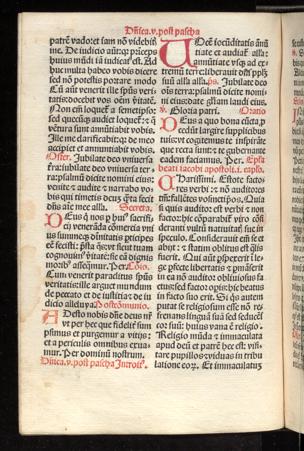 Dñica.v.post pascha
patrẽ vado:et iam nõ videbiti
me. De iudicio aũt:qz pricẽps
huius mũdi iã iudicatꝰ est. Ad
huc multa habeo vobis dicere
sed nõ potestis portare modo
Cũ aũt venerit ille spũs veri-
tatis:docebit vos oẽm vitatẽ.
Non eñ loquet a semetipso:
sed quecũqz audiet loquet: z q̃
vẽtura sunt annũtiabit vobis.
Ille me clarificabit:qz de meo
accipiet et annuntiabit vobis.
Offer. Jubilate deo vniuersa
terra:iubilate deo vniuersa ter-
ra:psalmũ dicite nomini eius:
venite z audite z narrabo vo-
bis qui timetis deum q̃ta fecit
dñs aĩe mee alľa. Secreta.
DEus q̃ nos p huiꝰ sacrifi-
cij venerãda cõmertia vni
us summeqz diuinitatis pticipes
ecisti: p̃sta q̃s:vt sicut tuam
cognouimꝰ vitatẽ:sic eã dignis
moribꝰ asseq̃mur. Per. Com.
Cum venerit paraclitus spũs
veritatis:ille arguet mundum
de peccato et de iusticia: et de iu
dicio alľa alľa Postcõmunio.
ADesto nobis dñe deus nr̃
vt per hec que fideliť sum
psimus et purgemur a vitijs:
et a periculis omnibus exua-
mur. Per dominũ nostrum.
Dñica.v.post pascha Introitꝰ.
VOcẽ iocũditatis ãnũ
tiate et audiať alľa:
annũtiate vsqz ad ex
tremũ terre:liberauit dñs pplm̃
suũ alľa alľa. ps. Jubilate deo
oĩs terra:psalmũ dicite nomi-
ni eius:date gľiam laudi eius.
Gloria patri. Oratio
DEus a quo bona cũcta p
cedũt largire supplicibus
tuis:vt cogitemus te inspirãte
que recta sunt: z te gubernante
eadem faciamus. Per. Epľa
beati iacobi apostoli. i. capľo.
CHarissimi. Estote facto-
res verbi: z nõ auditores
tm̃:fallẽtes vosmetipos. Quia
si quis auditor est verbi z non
factor:hic cõparabiť viro cõsi
deranti vultũ natiuitatꝭ sue in
speculo. Considerauit em̃ se et
abijt: z statim oblitus est q̃lis
fuerit. Qui aũt pspexerit ĩ le-
ge pfecte libertatis z pmãserit
in ea nõ auditor obliuiosus fa
ctus:sed factor opis:hic beatus
in facto suo erit. Si q̃s autem
putat se religiosum esse nõ re-
frenans linguã suã sed seducẽs
cor suũ: huius vana ẽ religio.
Religio mũda z immaculata
apud deũ et patrẽ hec est: visi-
tare pupillos z viduas in tribu
latione eoꝝ. Et immaculatũ